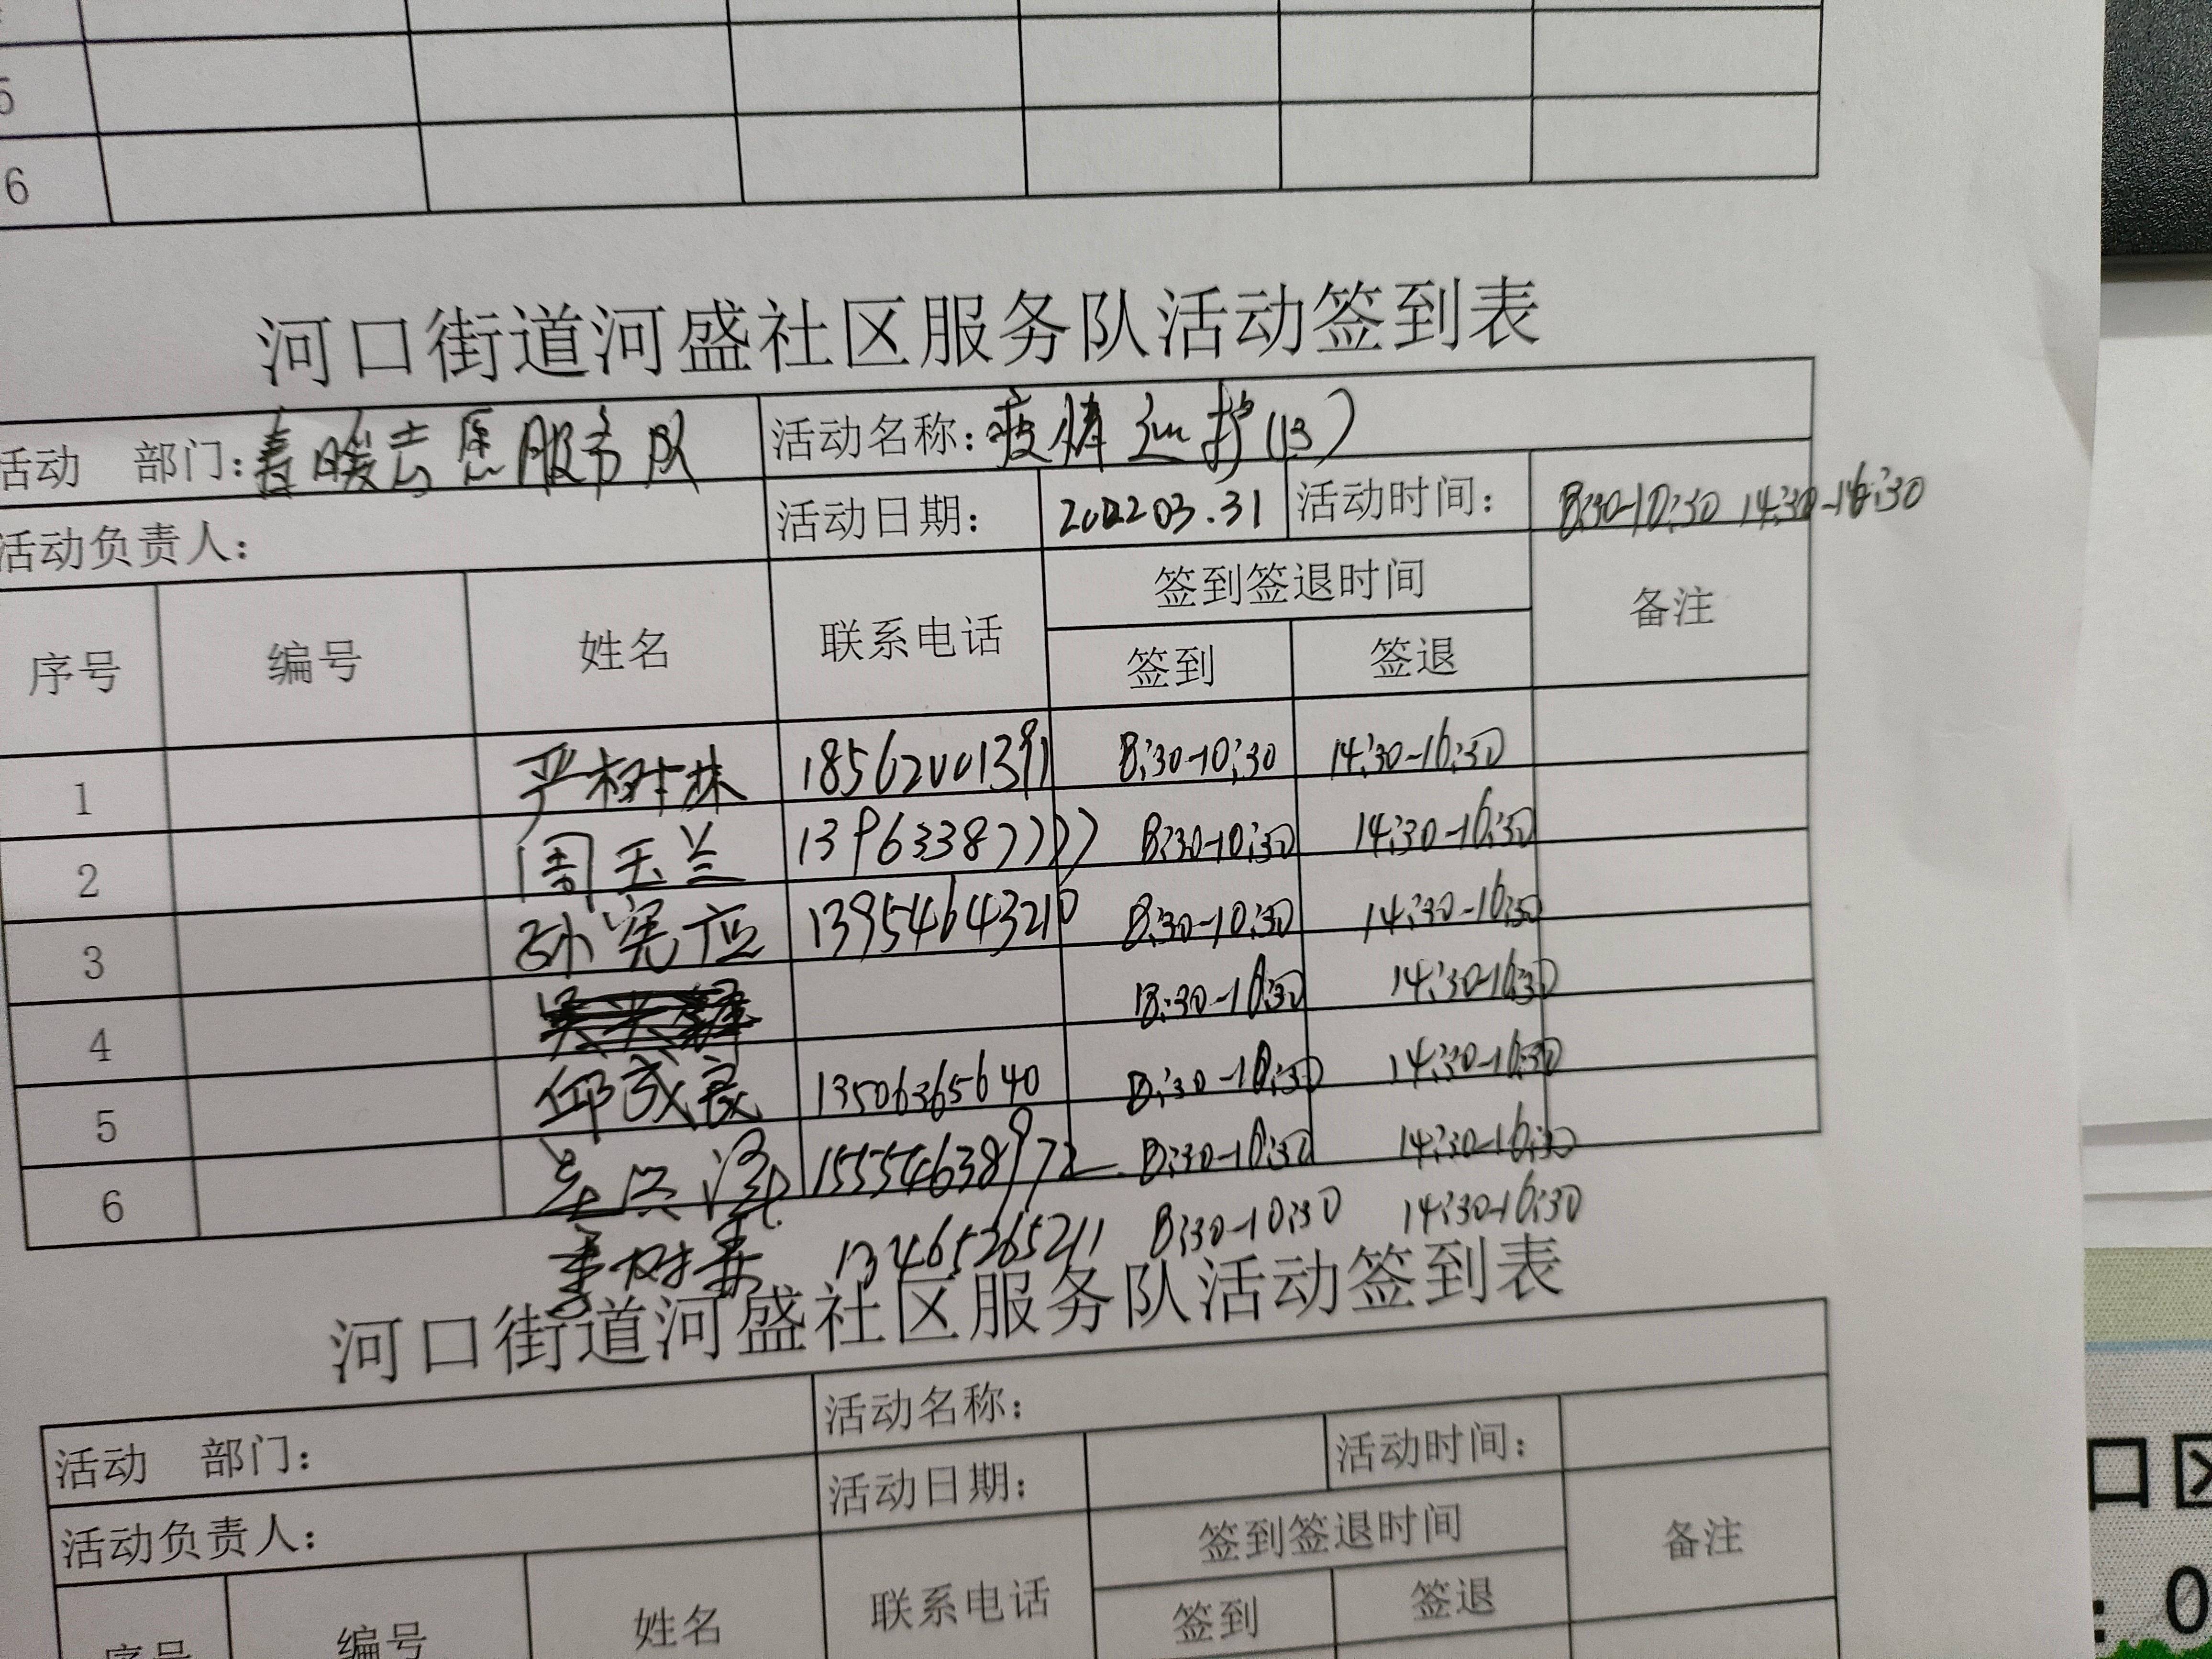 5
6
河口街道河盛社区服务队活动签到表
活动 部门:春暖志愿服务队 活动名称:疫情巡护(13)
活动负责人: 活动日期: 202203.31 活动时间: 8:30-10:30 14:30-16:30
序号 编号 姓名 联系电话 签到签退时间 备注
签到 签退
1 严树林 18562001391 8:30-10:30 14:30-16:30
2 周玉兰 13963387777 8:30-10:30 14:30-16:30
3 孙宪应 13954643210 8:30-10:30 14:30-16:30
4 8:30-10:30 14:30-16:30
5 邱成良 13506365640 8:30-10:30 14:30-16:30
6 15554638972 8:30-10:30 14:30-16:30
13465265211 8:30-10:30 14:30-16:30
河口街道河盛社区服务队活动签到表
活动 部门: 活动名称:
活动负责人: 活动日期: 活动时间:
序号 编号 姓名 联系电话 签到签退时间 备注
签到 签退
口区
: 0